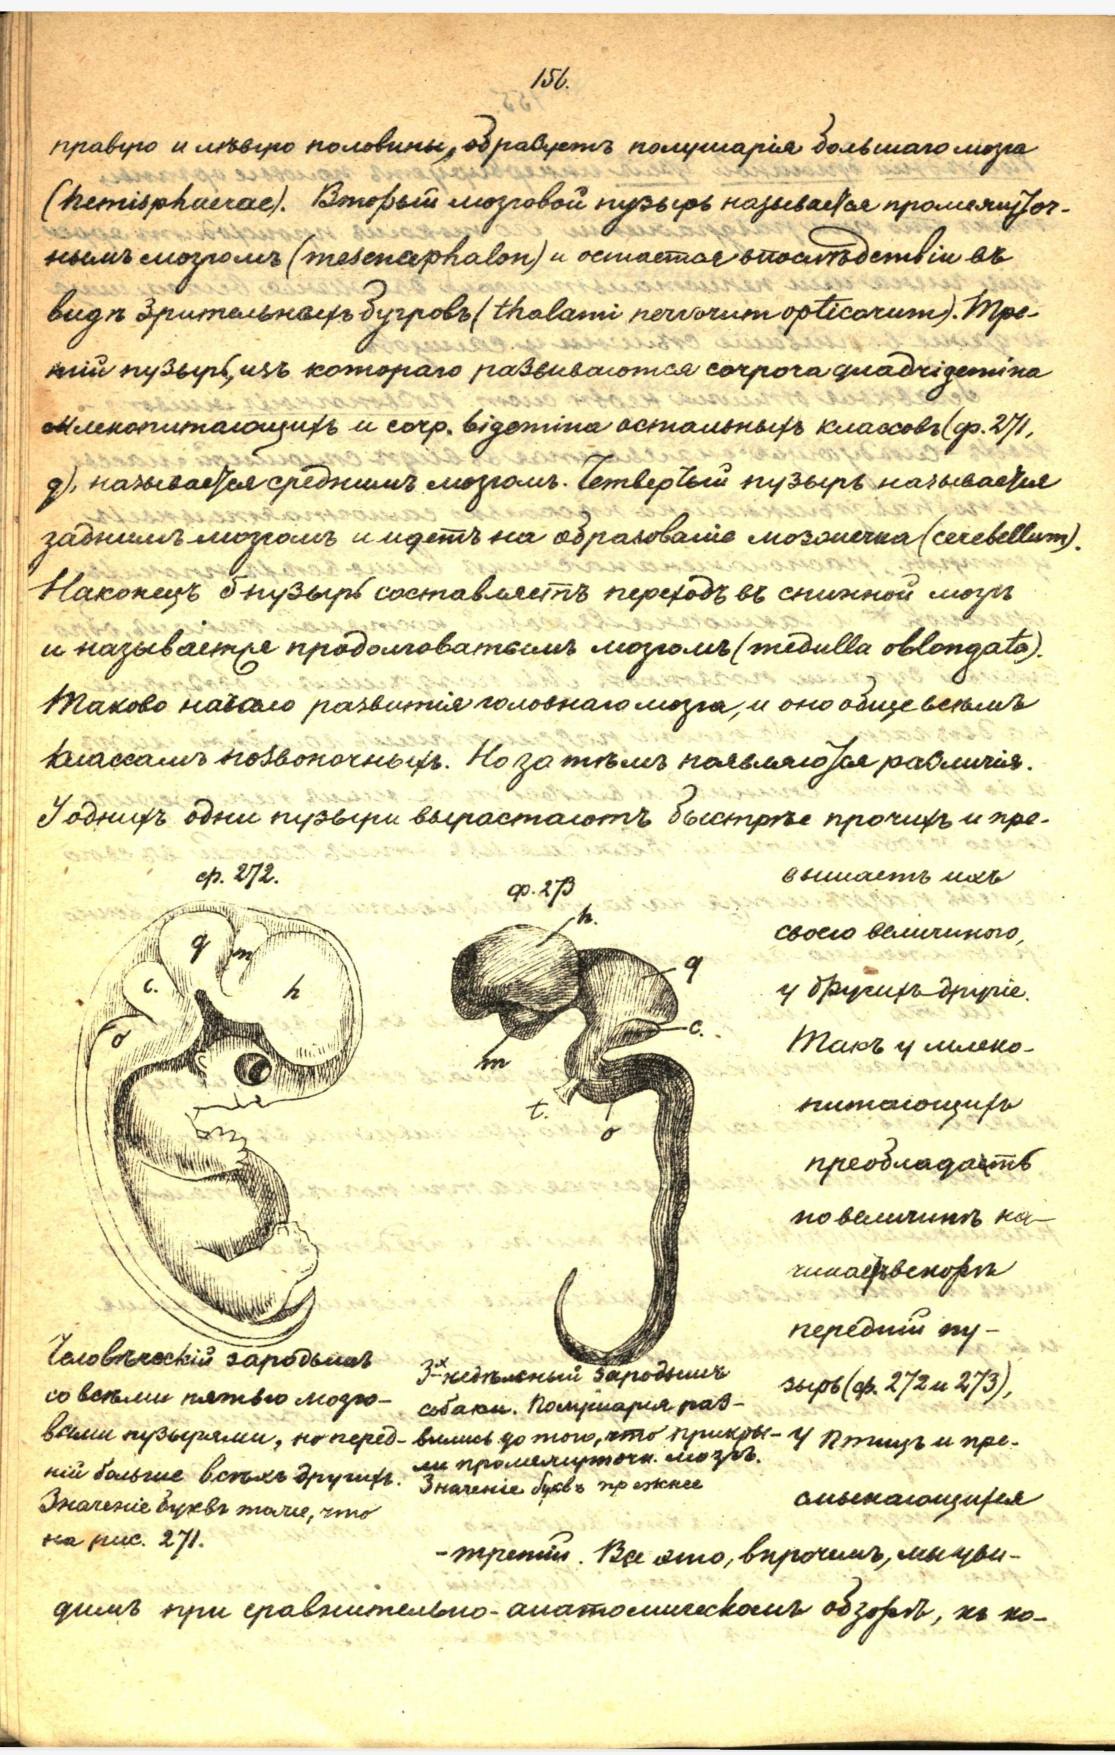 156.
правую и лѣвую половины, образуетъ полушарія большаго мозга
(hemisphaerae). Вторый мозговой пузырь называется промежуточ-
нымъ мозгомъ (mesencephalon) и остается впослѣдствіи въ
видѣ Зрительныхъ бугровъ (thalami nervorum opticorum). Тре-
тій пузырь, изъ котораго развиваются corpora quadrigemina
млекопитающихъ и corp. bigemina остальныхъ классовъ (ф. 271,
q), называется среднимъ мозгомъ. Четвертый пузырь называется
заднимъ мозгомъ и идетъ на образованіе мозжечка (cerebellum).
Наконецъ 5 пузырь составляетъ переходъ въ спинной мозгъ
и называется продолговатымъ мозгомъ (medulla oblongata).
Таково начало развитія головнаго мозга, и оно общее всѣмъ
классамъ позвоночныхъ. Но затѣмъ появляются различія.
У однихъ одни пузыри вырастаютъ быстрѣе прочихъ и пре-
вышаетъ ихъ
своею величиною,
у другихъ другіе.
Такъ у млеко-
питающихъ
преобладаетъ
по величинѣ на-
чинаетъ вскорѣ
передній пу-
зырь (ф. 272 и 273),
у Птицъ и пре-
смыкающихся
-третій. Все это, впрочемъ, мы уви-
димъ при сравнительно-анатомическомъ обзорѣ, къ ко-
ф. 272.
q
m
h
c.
o
Человѣческій зародышъ
со всѣми пятью мозго-
выми пузырями, но перед-
ній больше всѣхъ другихъ.
Значеніе буквъ тоже, что
на рис. 271.
ф. 273
h.
q
c.
m
t.
o
3-х недѣльный зародышъ
собаки. Полушарія раз-
вились до того, что прикры-
ли промежуточн. мозгъ.
Значеніе буквъ прежнее